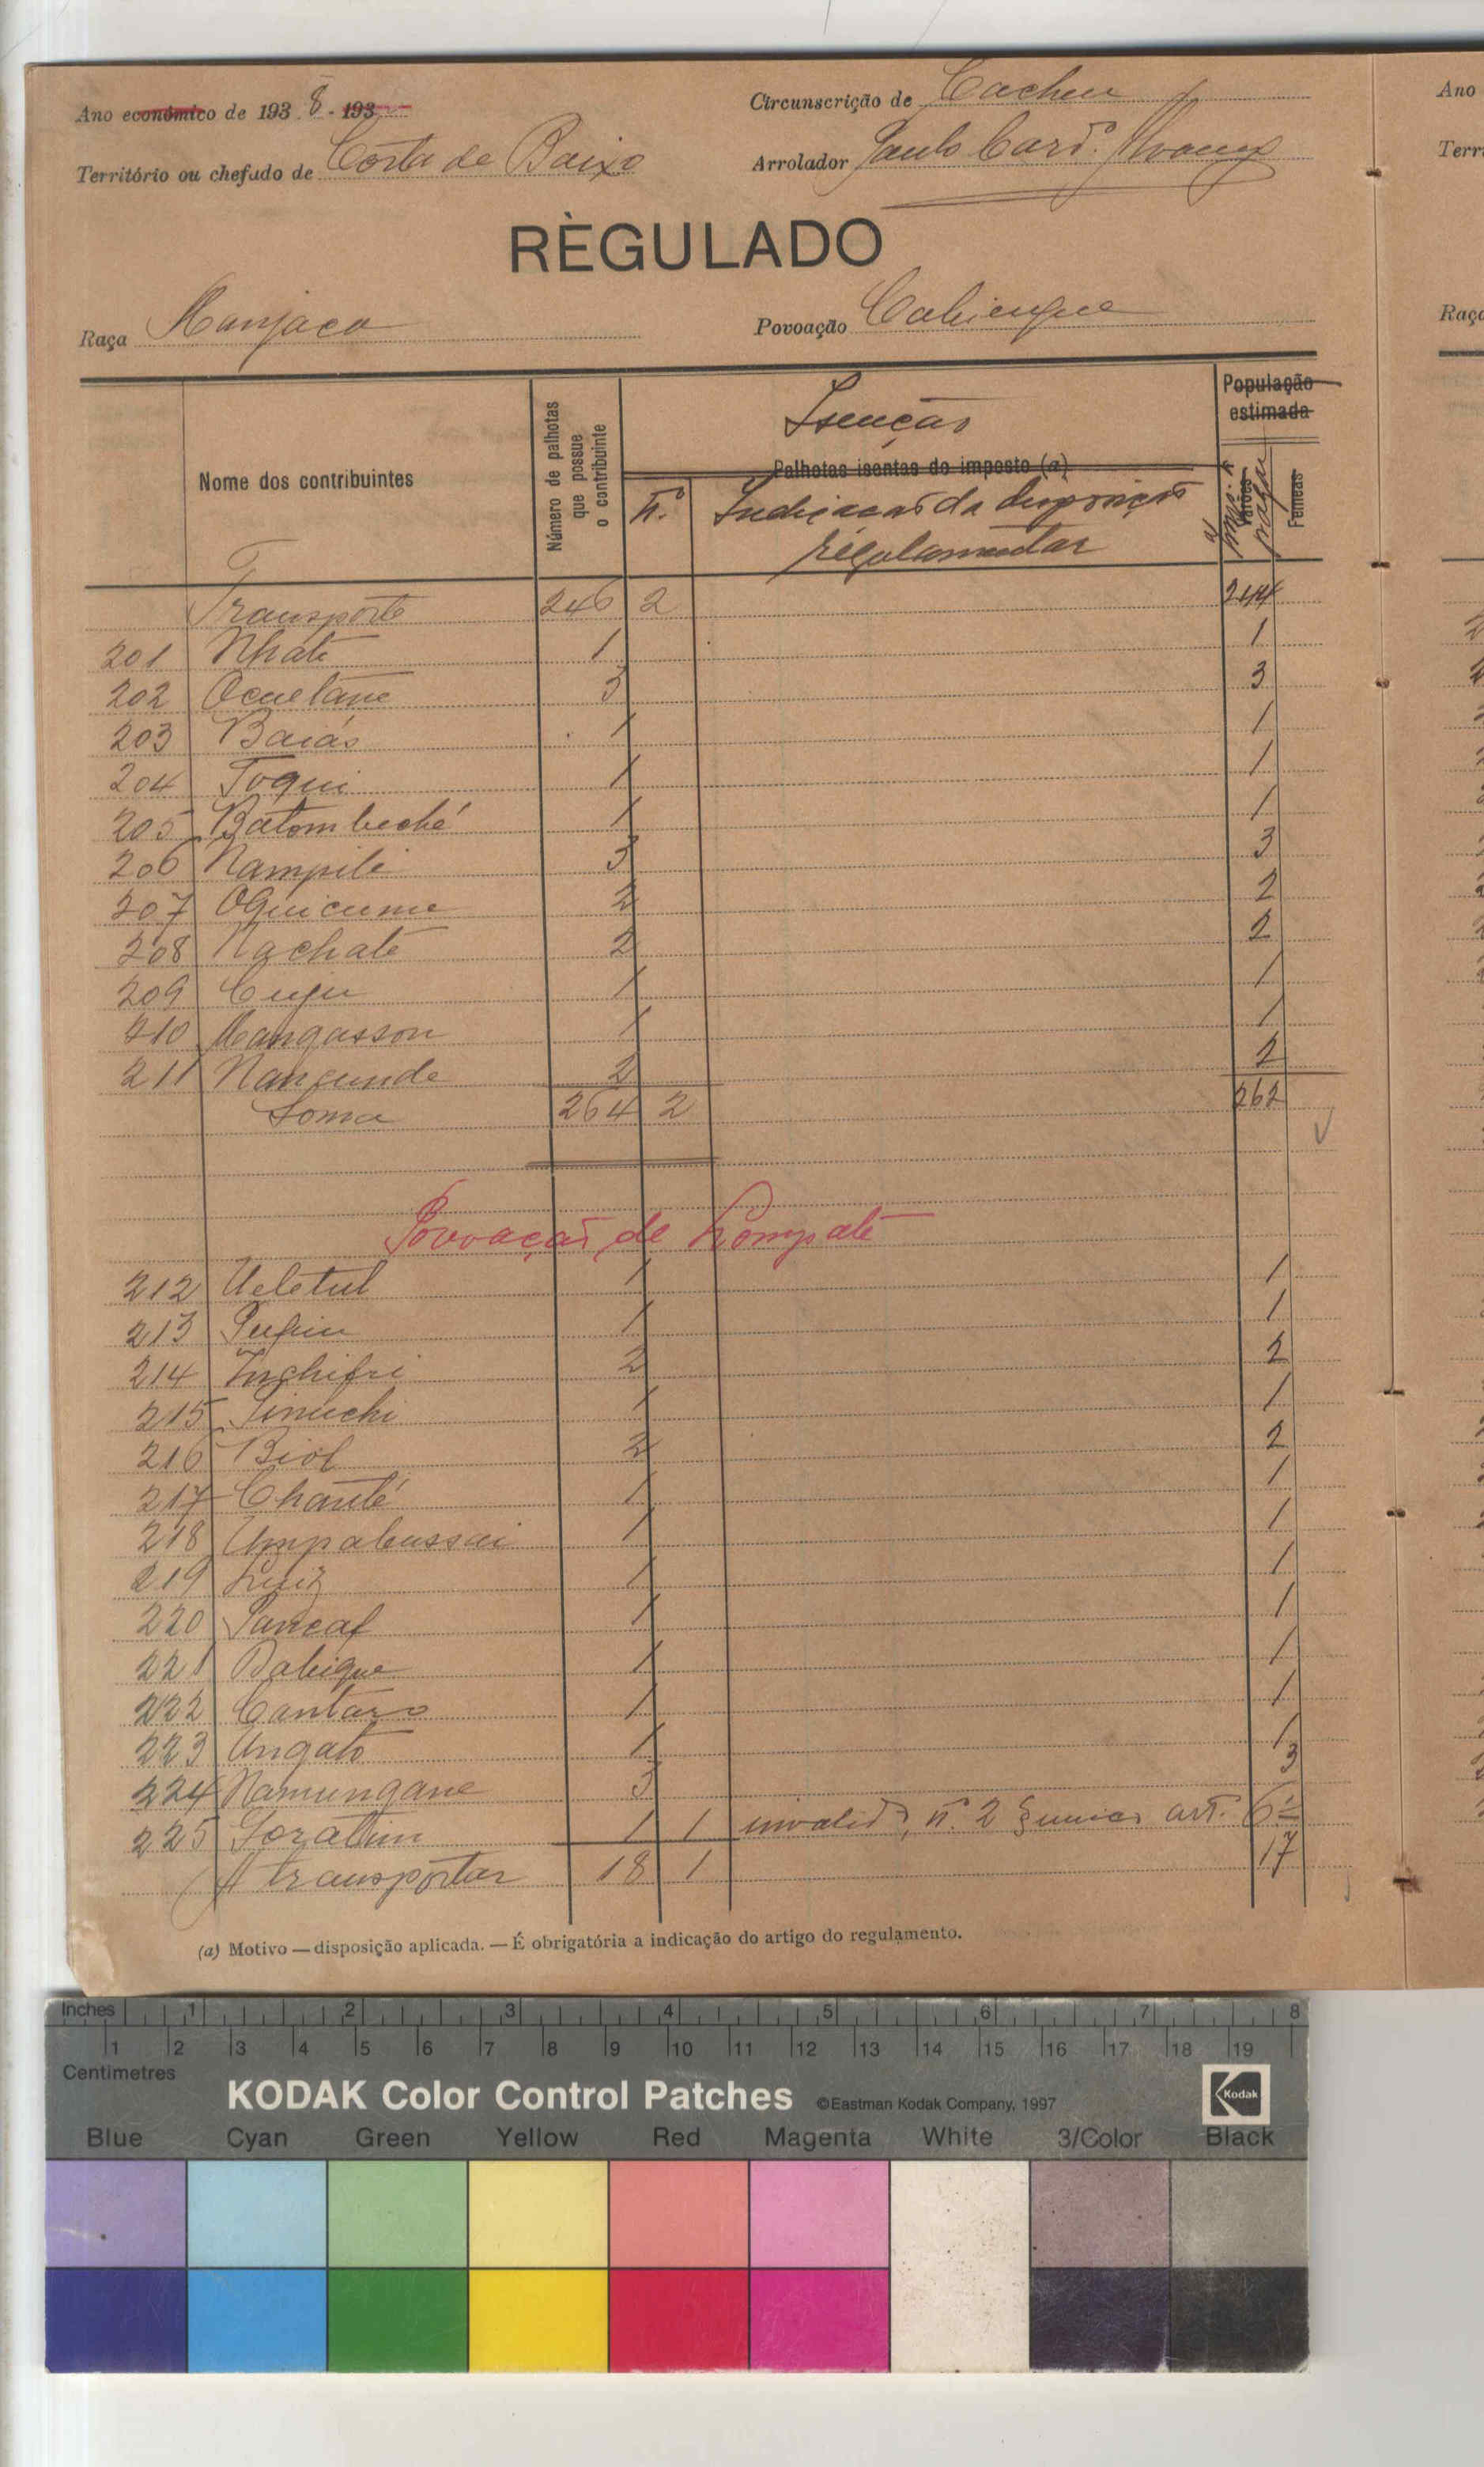 Ano económico de 193 8 - 193
Circunscrição de Cacheu
Território ou chefado de Costa de Baixo
Arrolador Paulo Card.
RÈGULADO
Raça Manjaca
Povoação Cabiengue
Nome dos contribuintes
Número de palhotas que possue o contribuinte
Isenção
Palhotas isentas do imposto (a)
n.º
Indicação da disposição regulamentar
População estimada
Varões
Fêmeas
Transporte 246 2 244
201 Nhate 1 1
202 Ocuetane 3 3
203 Baiás 1 1
204 Toqui 1 1
205 Batombeché 1 1
206 Nampile 3 3
207 Oquicume 2 2
208 Nachate 2 2
209 Cuju 1 1
210 Mangasson 1 1
211 Nangunde 2 2
Soma 264 2 262
Povoação de
212 Ueletul 1 1
213 1 1
214 Inghifri 2 2
215 1 1
216 Biol 2 2
217 Chanté 1 1
218 Umpabussai 1 1
219 Luiz 1 1
220 Pancaf 1 1
221 Dabigue 1 1
222 Cantaro 1 1
223 Ungato 1 1
224 Namungane 3 3
225 1 1 invalido, n.º 2 § unico art. 6º
A transportar 18 1 17
(a) Motivo — disposição aplicada. — É obrigatória a indicação do artigo do regulamento.
Inches 1 2 3 4 5 6 7 8
1 2 3 4 5 6 7 8 9 10 11 12 13 14 15 16 17 18 19
Centimetres
KODAK Color Control Patches ©Eastman Kodak Company, 1997
Kodak
Blue Cyan Green Yellow Red Magenta White 3/Color Black